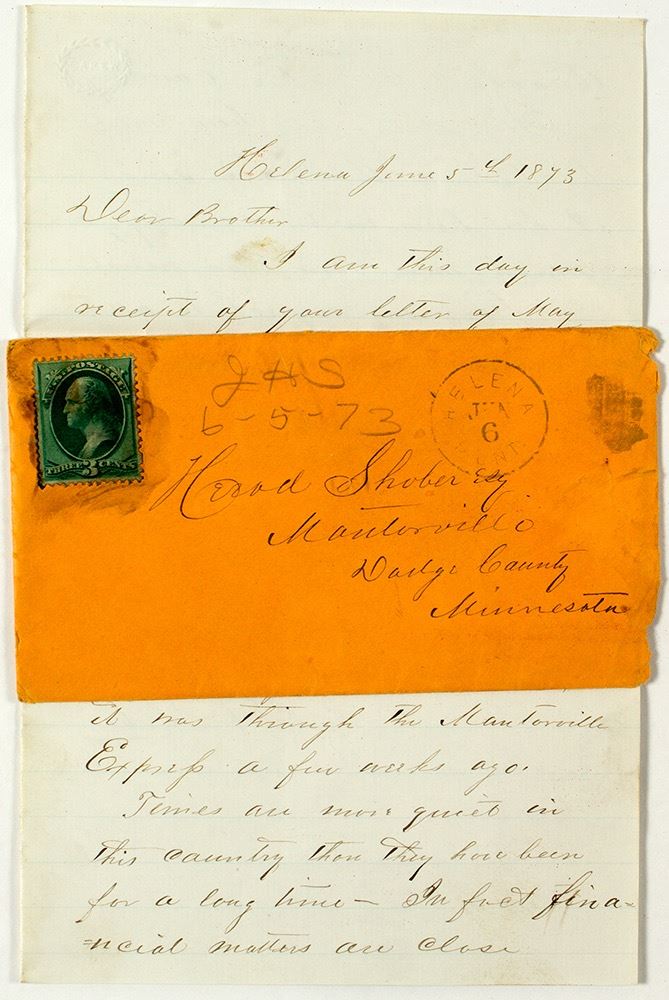 Helena June 5th 1873
Dear Brother
I am this day in
receipt of your letter of May
U.S. POSTAGE
THREE 3 CENTS
JHS
6-5-73
HELENA
JUN
6
MONT
Herod Shober Esq
Mantorville
Dodge County
Minnesota
it was through the Mantorville
Express a few weeks ago.
Times are more quiet in
this country than they have been
for a long time – In fact fina=
=ncial matters are close